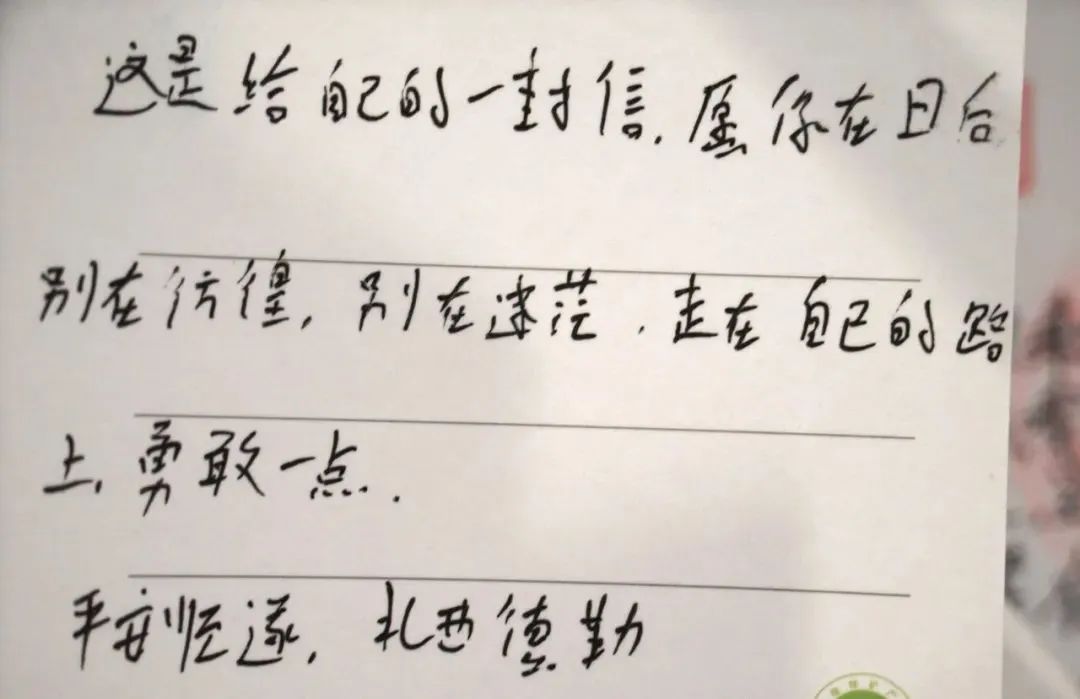 这是给自己的一封信.愿你在日后
别在彷徨,别在迷茫.走在自己的路
上,勇敢一点.
平安顺遂,扎西德勒